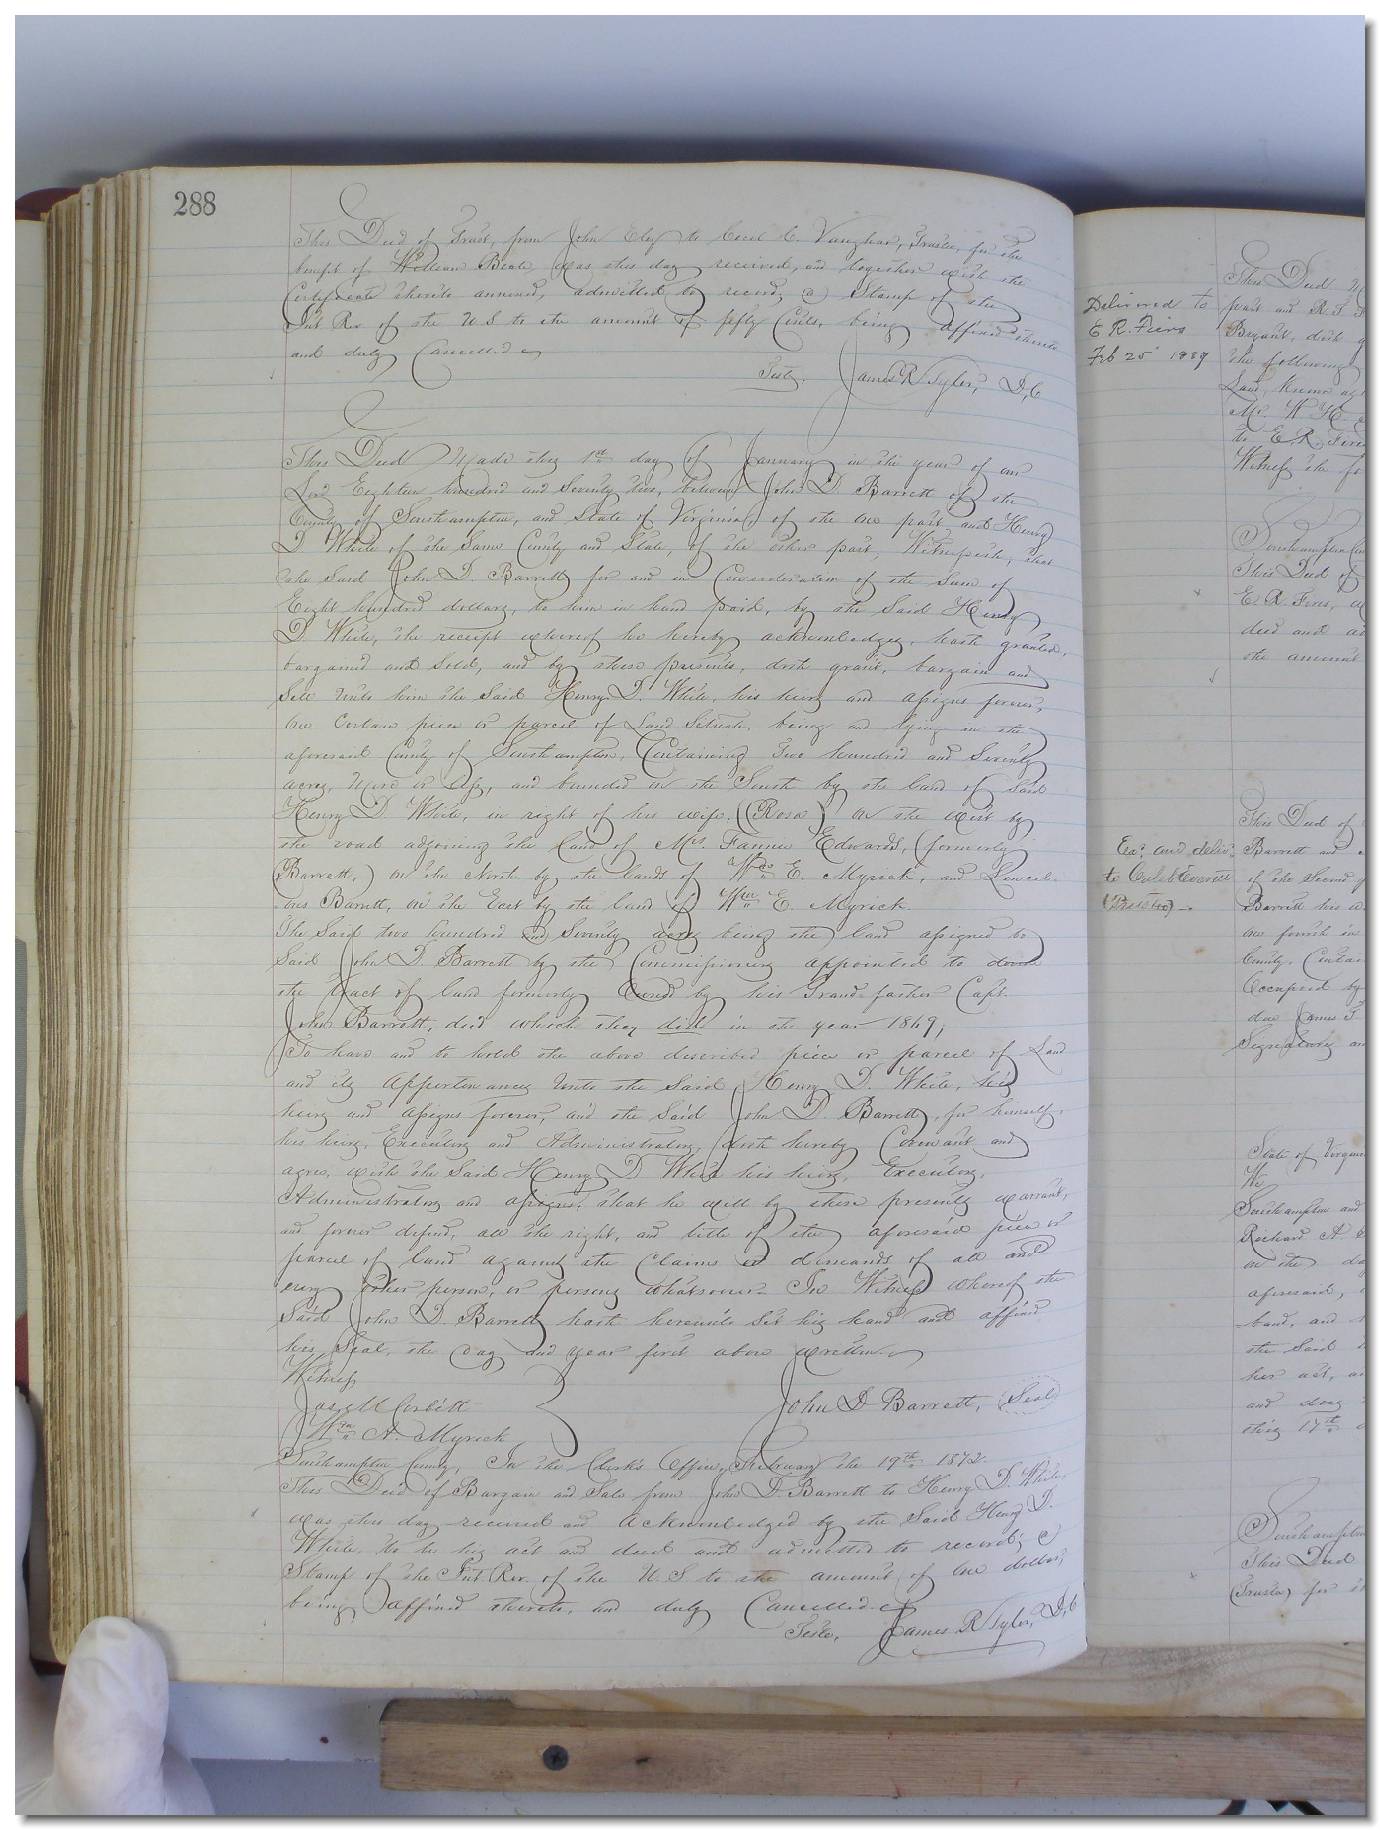 288
This Deed of Trust, from John Ely to Cecil C. Vaughan, Trustee, for the
benefit of William Beale, was this day received, and together with the
Certificate thereto annexed, admitted to record, a Stamp of the
Int Rev of the U.S to the amount of fifty Cents, being affixed thereto
and duly Cancelled
Teste. James R Tyler, D,C
This Deed Made this 1st day of January in the year of our
Lord Eighteen hundred and Seventy two, between John D. Barrett of the
County of Southampton, and State of Virginia, of the one part and Henry
D White of the Same County and State, of the other part, Witnesseth, that
the Said John D. Barrett for and in Consideration of the Sum of
Eight hundred dollars, to him in hand paid, by the Said Henry
D. White, the receipt whereof he hereby acknowledges, hath granted,
bargained and Sold, and by these presents, doth grant, bargain and
Sell unto him the Said Henry D. White, his heirs and assigns forever,
one Certain piece or parcel of Land Situate, being and lying in the
aforesaid County of Southampton, Containing Two hundred and Seventy
acres, More or less, and bounded on the South by the land of Said
Henry D White, in right of his wife, (Rosa) on the west by
the road adjoining the land of Mrs. Fannie Edwards, (formerly
Barrett,) on the North by the lands of Wm E. Myrick, and
Barrett, on the East by the land of Wm E. Myrick.
The Said two hundred and Seventy acres being the land assigned to
Said John D. Barrett by the Commissioners appointed to
the tract of land formerly Owned by his Grand-father Capt.
John Barrett, decd which they did in the year 1869,
To have and to hold the above described piece or parcel of Land
and its Appurtenances unto the Said Henry D. White, his
heirs and assigns forever, and the Said John D. Barrett, for himself,
his heirs, Executors and Administrators, doth hereby Covenant and
agree, with the Said Henry D White his heirs, Executors,
Administrators and assigns, that he will by these presents warrant,
and forever defend, all the right, and title of the aforesaid piece or
parcel of land against the Claims or demands of all and
every other person, or persons whatsoever. In Witness whereof the
Said John D. Barrett hath hereunto Set his hand and affixed
his Seal, the day and year first above written.
Witness
Jas M Corbitt
Wm A. Myrick
John D Barrett, Seal
Southampton County, In the Clerk's Office, February the 19th 1872.
This Deed of Bargain and Sale from John D. Barrett to Henry D. White,
was this day received and Acknowledged by the Said Henry D.
White to be his act and deed and admitted to record; a
Stamp of the Int Rev. of the U.S to the amount of one dollar,
being affixed thereto, and duly Cancelled.
Teste, James R Tyler, D,C
Delivered to
E R. Fiers
Feb 25 1889
Exd and deliv
to
(Trustee)
This Deed
part and R. T
Bryant, doth
the following
Land, known as
Mr. W H
to E. R. Fiers
Witness the
Southampton
This Deed of
E R. Fiers,
deed and
the amount
This Deed of
Barrett and
of the Second
Barrett his
one fourth in
County,
Occupied by
due James T
Signatory
State of Virgin
We
Southampton and
Richard A
on the
aforesaid,
band, and
the Said
her act,
and
this 17th
Southampton
This Deed
(Trustee) for